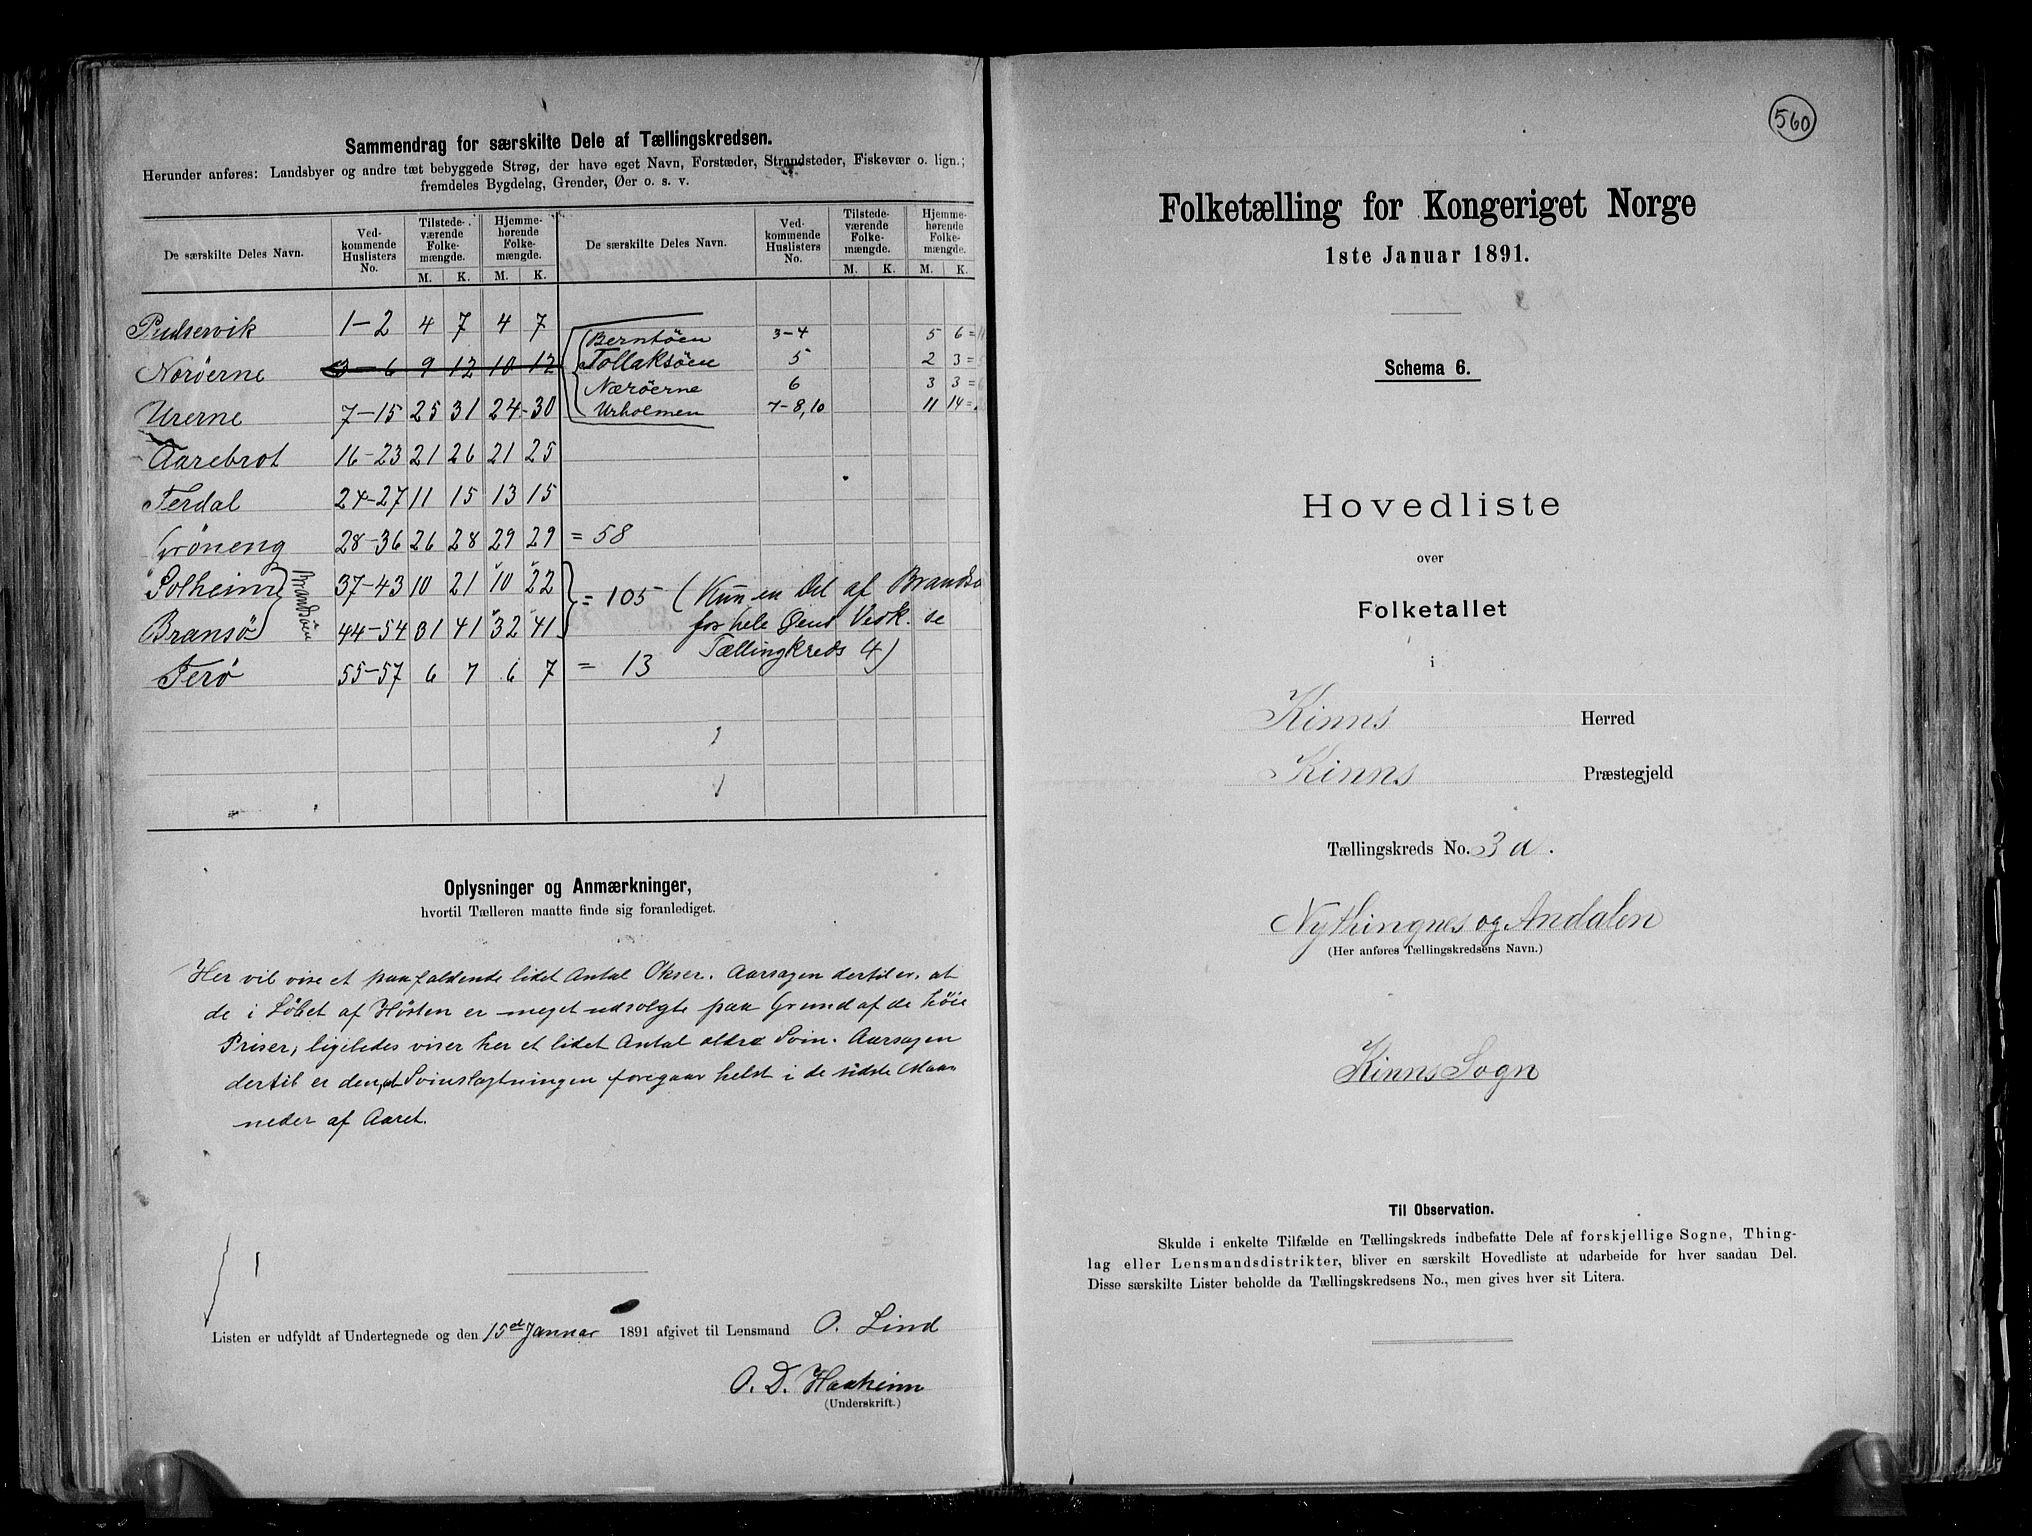 Sammendrag for særskilte Dele af Tællingskredsen.
Herunder anføres: Landsbyer og andre tæt bebyggede Strøg, der have eget Navn, Forstæder, Strandsteder, Fiskevær o. lign.;
fremdeles Bygdelag, Grender, Øer o. s. v.
De særskilte Deles Navn. Vedkommende Huslisters No. Tilstedeværende Folkemængde. M. K. Hjemmehørende Folkemængde. M. K. De særskilte Deles Navn. Vedkommende Huslisters No. Tilstedeværende Folkemængde. M. K. Hjemmehørende Folkemængde. M. K.
1-2 4 7 4 7
Norøerne 3-6 9 12 10 12
Urerne 7-15 25 31 24 30
Aarebrot 16-23 21 26 21 25
Terdal 24-27 11 15 13 15
Grøneng 28-36 26 28 29 29 = 58
Solheim 37-43 10 21 10 22
Bransø 44-54 31 41 32 41
Brandsøen
Terø 55-57 6 7 6 7 = 13
Berntøen 3-4 5 6 = 11
Tollaksøen 5 2 3 =
Nærøerne 6 3 3 = 6
Urholmen 7-8, 10 11 14 =
= 105 (Kun en Del af Brandsø
for hele Øens Vedk. se
Tællingkreds 4)
Oplysninger og Anmærkninger,
hvortil Tælleren maatte finde sig foranlediget.
Her vil vise et paafaldende lidet Antal Okser. Aarsagen dertil er, at
de i Løbet af Høsten er meget udsolgte paa Grund af de høie
Priser, ligeledes viser her et lidet Antal ældre Svin. Aarsagen
dertil er den, at Svinslagtningen foregaar helst i de sidste Maa-
neder af Aaret.
Listen er udfyldt af Undertegnede og den 15de Januar 1891 afgivet til Lensmand O. Lind
O. D. Haaheim
(Underskrift.)
560
Folketælling for Kongeriget Norge
1ste Januar 1891.
Schema 6.
Hovedliste
over
Folketallet
i
Kinns Herred
Kinns Præstegjeld
Tællingskreds No. 3 a.
Nythingnes og Andalen
(Her anføres Tællingskredsens Navn.)
Kinns Sogn
Til Observation.
Skulde i enkelte Tilfælde en Tællingskreds indbefatte Dele af forskjellige Sogne, Thing-
lag eller Lensmandsdistrikter, bliver en særskilt Hovedliste at udarbeide for hver saadan Del.
Disse særskilte Lister beholde da Tællingskredsens No., men gives hver sit Litera.